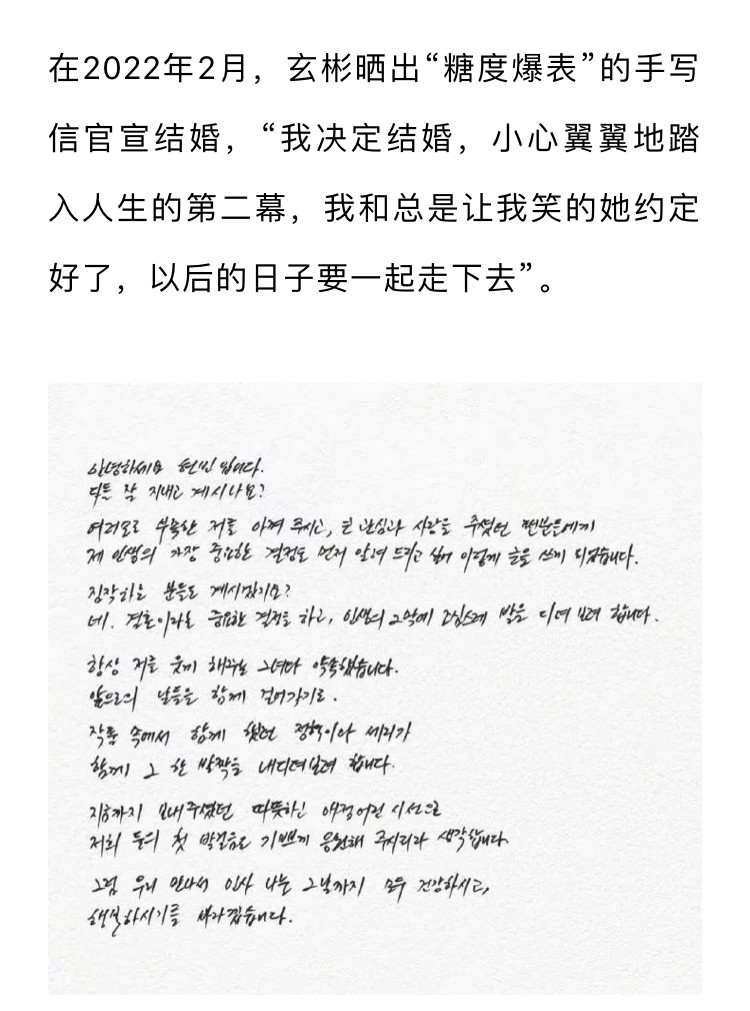 在2022年2月，玄彬晒出“糖度爆表”的手写
信官宣结婚，“我决定结婚，小心翼翼地踏
入人生的第二幕，我和总是让我笑的她约定
好了，以后的日子要一起走下去”。
안녕하세요 현빈입니다.
다들 잘 지내고 계시나요?
여러모로 부족한 저를 아껴 주시고, 큰 관심과 사랑을 주셨던 팬분들에게
제 인생의 가장 중요한 결정을 먼저 알려 드리고 싶어 이렇게 글을 쓰게 되었습니다.
짐작하는 분들도 계시겠지요?
네. 결혼이라는 중요한 결정을 하고, 인생의 2막에 조심스레 발을 디뎌 보려 합니다.
항상 저를 웃게 해주는 그녀와 약속했습니다.
앞으로의 날들을 함께 걸어가기로.
작품 속에서 함께 했던 정혁이와 세리가
함께 그 한 발짝을 내디뎌보려 합니다.
지금까지 보내주셨던 따뜻하신 애정어린 시선으로
저희 둘의 첫 발걸음을 기쁘게 응원해 주시리라 생각합니다.
그럼 우리 만나서 인사 나눌 그날까지 모두 건강하시고,
행복하시기를 바라겠습니다.